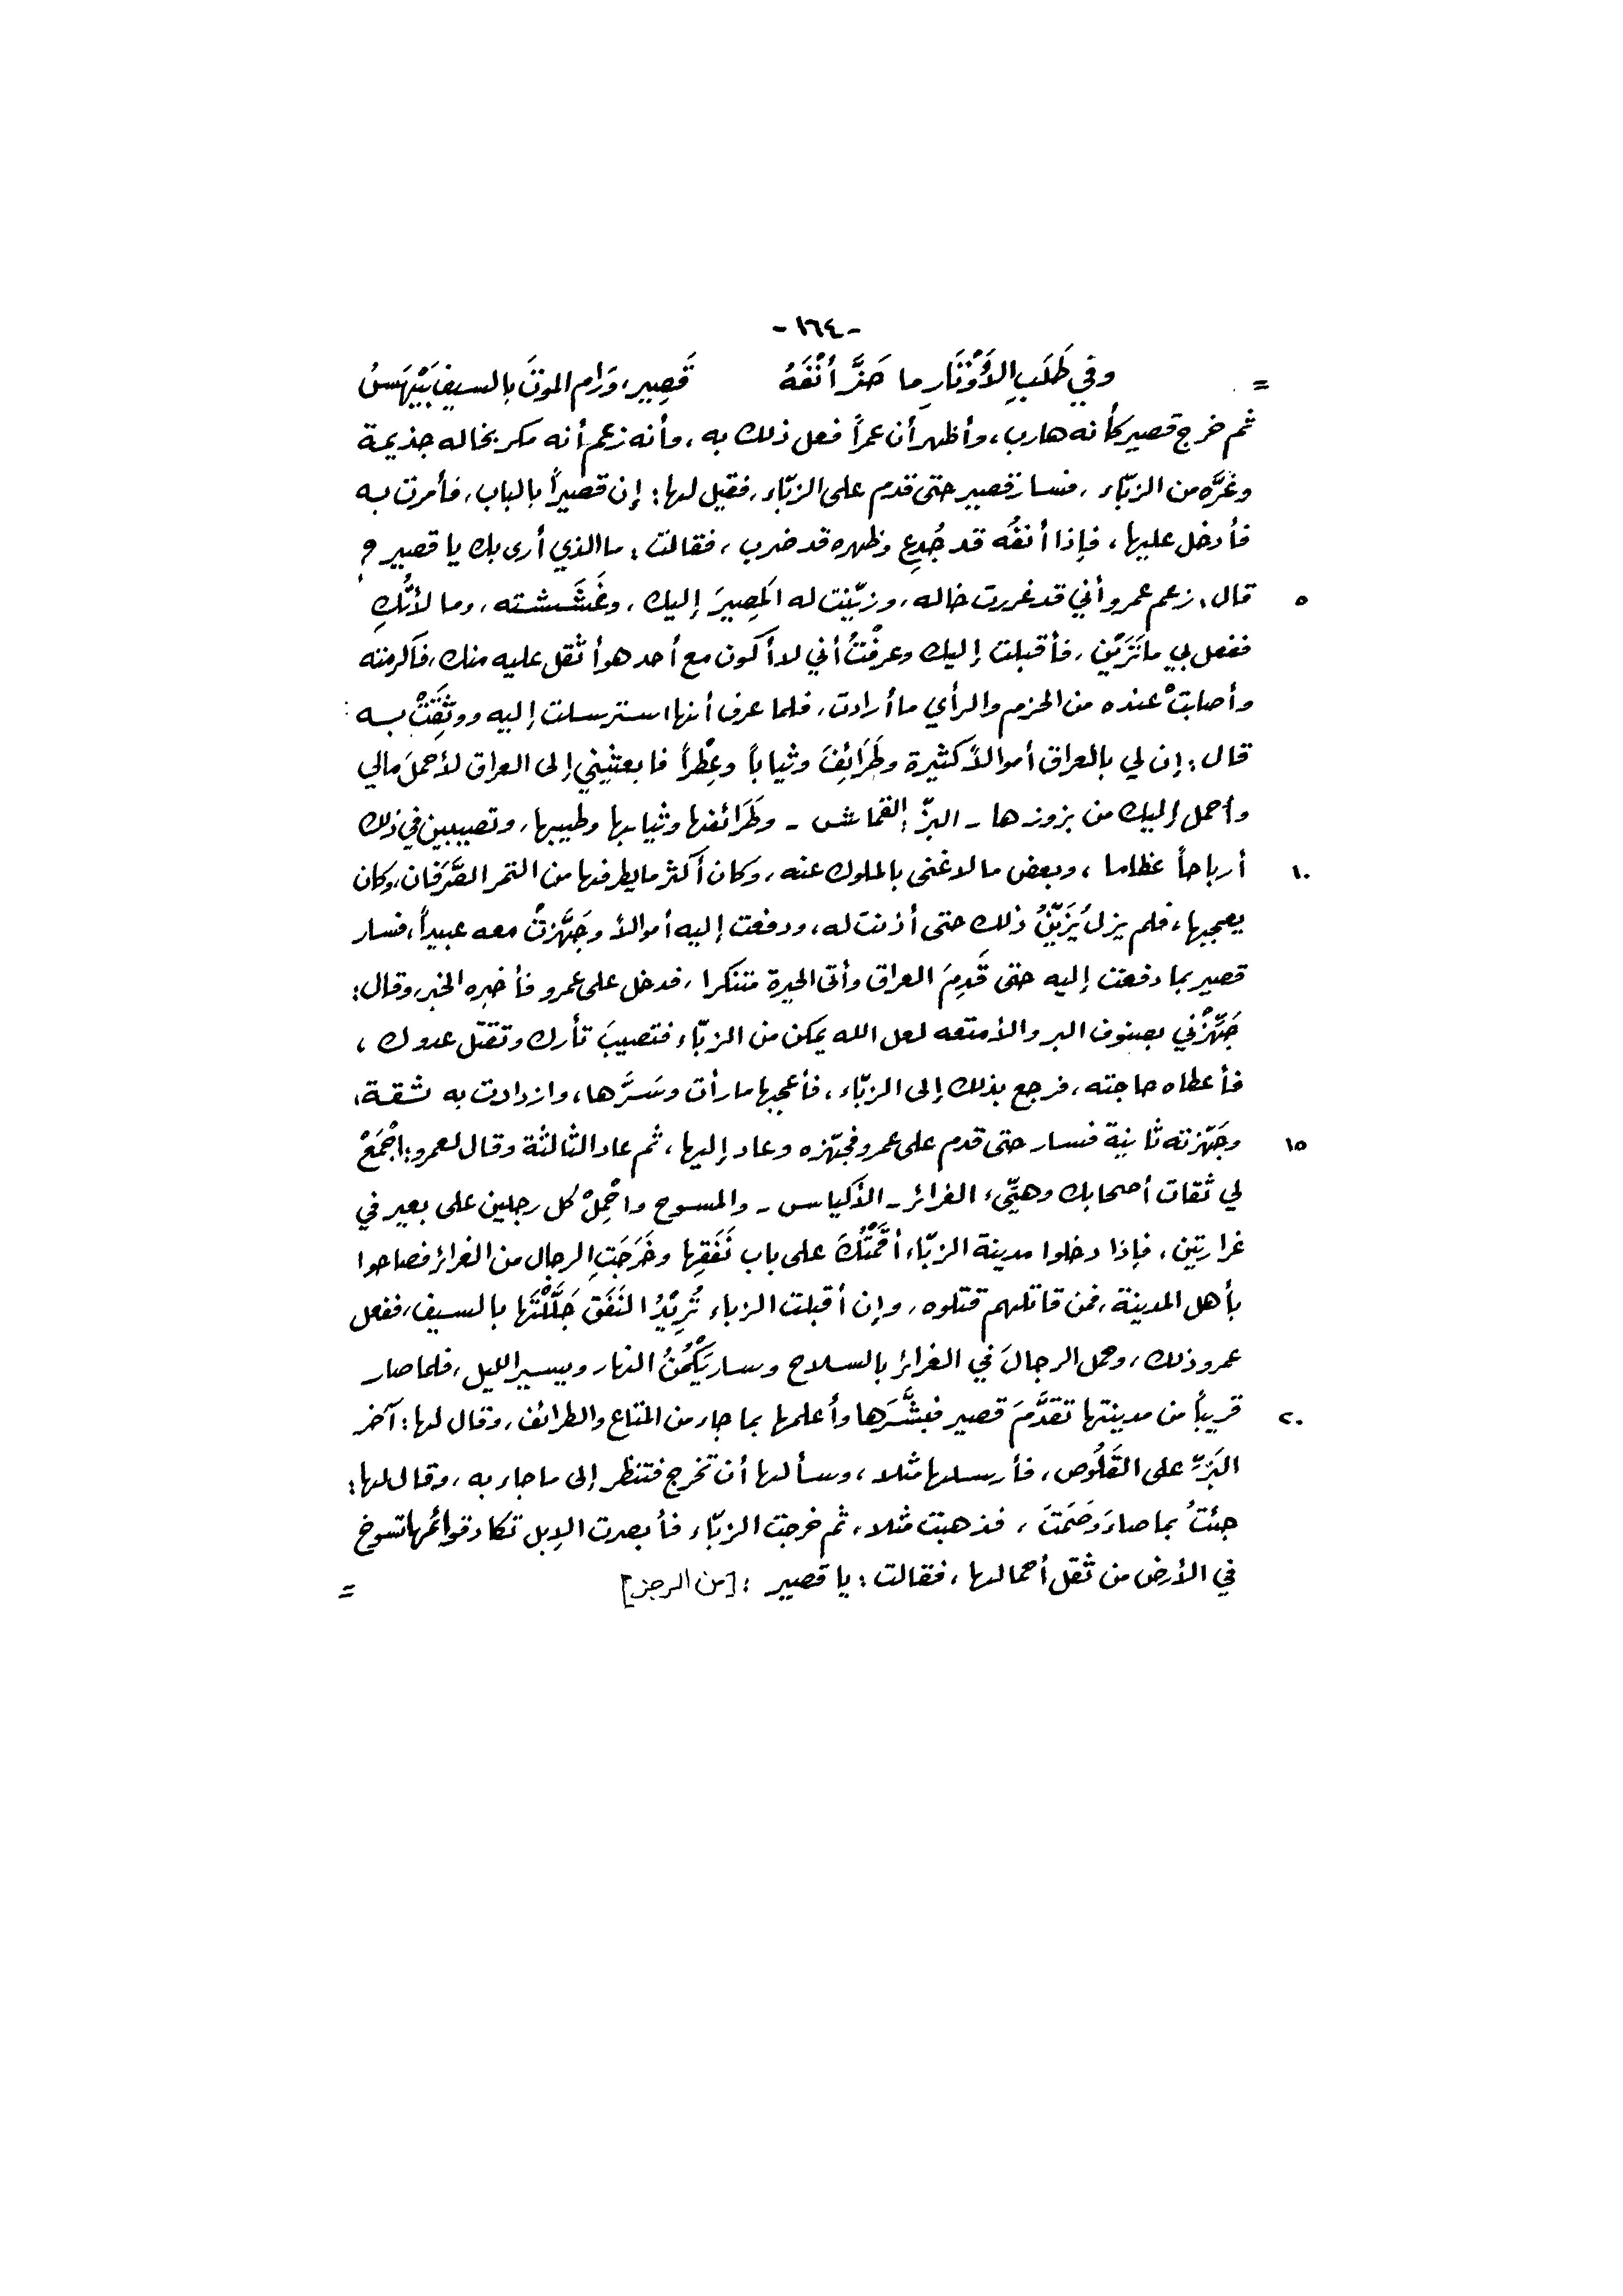 -١٦٤-
= وفي طَلَبِ الأَوْتَارِ ما حَزَّ أنْفَهُ قَصِير، وَرَام الموتَ بالسيفِ بَيْهَسُ
ثم خرج قصير كأنه هارب، وأظهر أن عمراً فعل ذلك به، وأنه زعم أنه مكر بخاله جذيمة
وغرَّه من الزبّاء، فسار قصير حتى قدم على الزبّاء، فقيل لها: إن قصيراً بالباب، فأمرت به
فأدخل عليها، فإذا أنفُه قد جُدِع وظهره قد ضرب، فقالت: ما الذي أرى بك يا قصير؟
٥ قال: زعم عمرو أني قد غررت خاله، وزيّنت له المصِيرَ إليك، وغَشَشته، ومالأتُكِ
ففعل بي ما تَرَيْن، فأقبلت إليك وعرفْتُ أني لا أكون مع أحد هو أثقل عليه منك، فأكرمته
وأصابتْ عنده من الحزم والرأي ما أرادت، فلما عرف أنها استرسلت إليه ووثِقَتْ به :
قال: إن لي بالعراق أموالاً كثيرة وطَرَائِفَ وثياباً وعِطْراً فابعثيني إلى العراق لأحملَ مالي
وأحمل إليك من بزوزها - البزّ: القماش - وطَرَائفها وثيابها وطيبها، وتصيبين في ذلك
١٠ أرباحاً عظاما، وبعض ما لا غنى بالملوك عنه، وكان أكثر ما يطرفها من التمر الصَّرَفان، وكان
يعجبها، فلم يزل يُزَيّنُ ذلك حتى أذنت له، ودفعت إليه أموالاً وجَهَّزتْ معه عبيداً، فسار
قصير بما دفعت إليه حتى قَدِمَ العراق وأتى الحيرة متنكرا، فدخل على عمرو فأخبره الخبر، وقال:
جَهِّزْني بصنوف البر والأمتعه لعل الله يمكن من الزبّاء فتصيبَ ثأرك وتقتل عدوك،
فأعطاه حاجته، فرجع بذلك إلى الزبّاء، فأعجبها ما رأت وسَرَّها، وازدادت به ثقة،
١٥ وجَهّزته ثانية فسار حتى قدم على عمرو فجهّزه وعاد إليها، ثم عاد الثالثة وقال لعمرو: اجْمَعْ
لي ثقات أصحابك وهيِّىء الغرائر - الأكياس - والمسوح واحْمِلْ كل رجلين على بعير في
غرارتين، فإذا دخلوا مدينة الزبّاء أقَمْتُكَ على باب نَفَقِها وخَرَجَتِ الرجال من الغرائر فصاحوا
بأهل المدينة، فمن قاتلهم قتلوه، وإن أقبلت الزباء تُرِيْدُ النَفَقَ جَلَّلْتَها بالسيف، ففعل
عمرو ذلك، وحمل الرجالَ في الغرائر بالسلاح وسار يَكْمُنُ النهار ويسير الليل، فلما صار
٢٠ قريباً من مدينتها تقدَّمَ قصير فبشَّرَها وأعلمها بما جاء من المتاع والطرائف، وقال لها: آخر
البَزِّ على القَلُوص، فأرسلها مثلا، وسألها أن تخرج فتنظر إلى ما جاء به، وقال لها:
جئتُ بما صاءَ وصَمَتَ، فذهبت مثلا، ثم خرجت الزبّاء فأبصرت الإبل تكاد قوائمها تسوخ
في الأرض من ثقل أحمالها، فقالت: يا قصير: [من الرجز] =